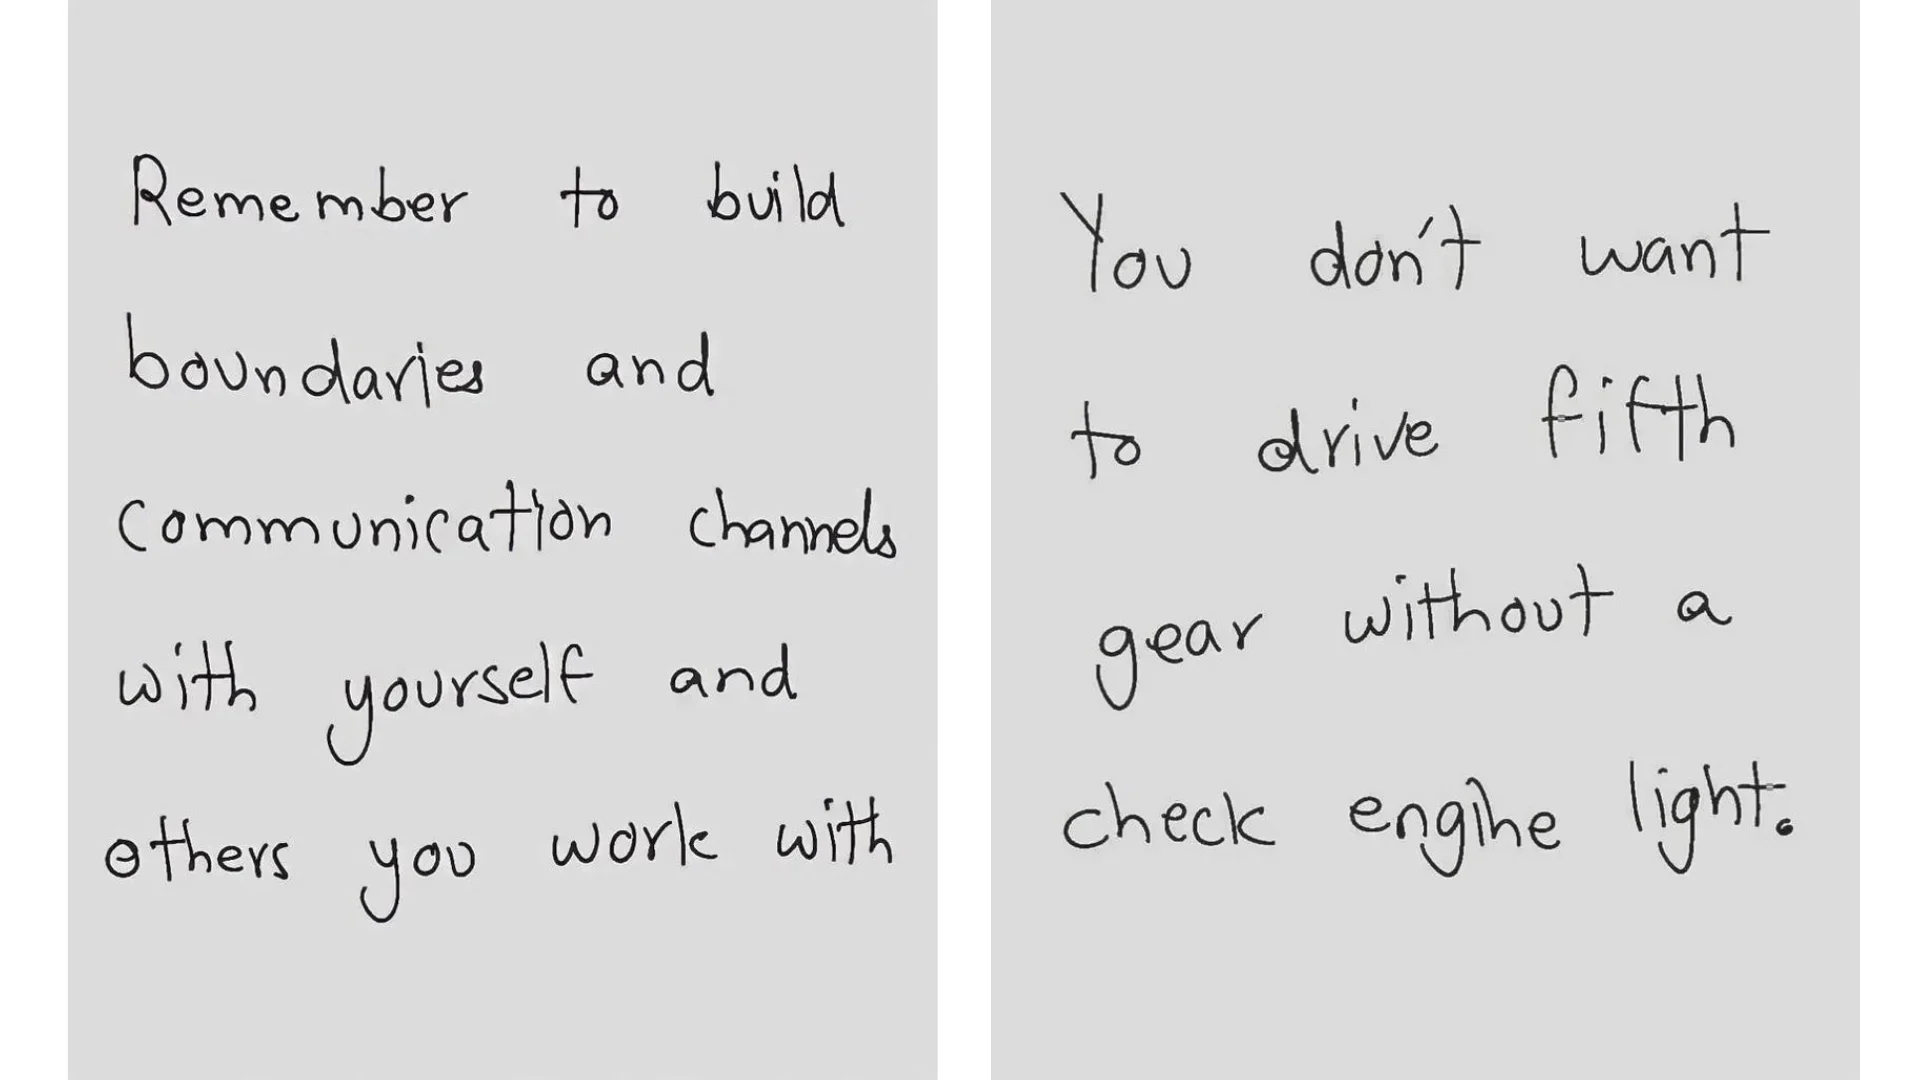 Remember to build
boundaries and
communication channels
with yourself and
others you work with
You don't want
to drive fifth
gear without a
check engine light.